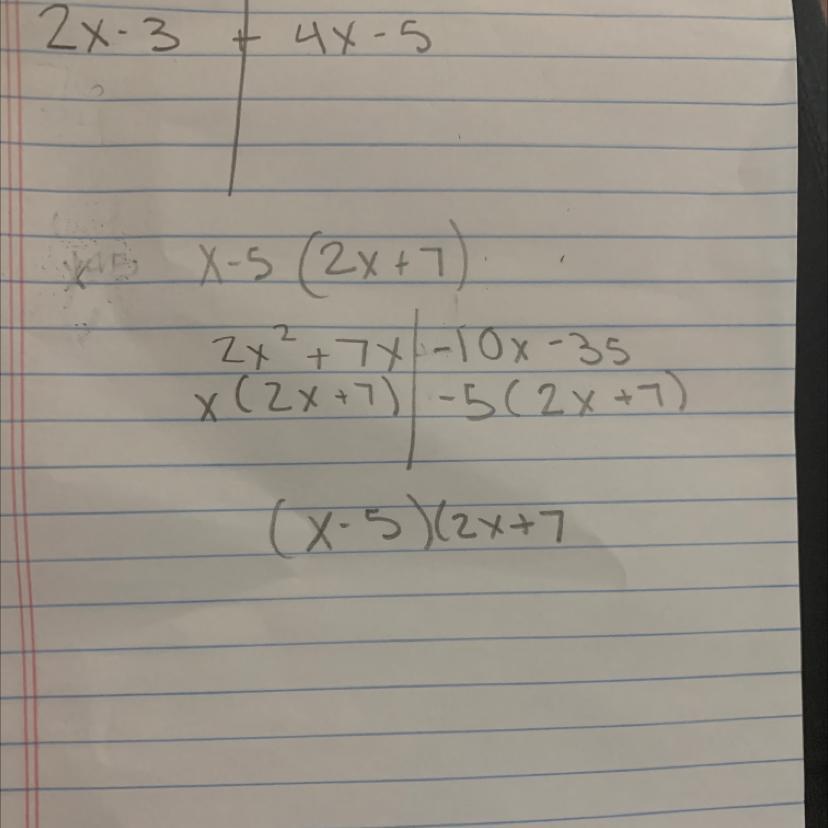 2x-3 + 4x-5
x-5 (2x+7)
2x²+7x | -10x-35
x(2x+7) | -5(2x+7)
(x-5)(2x+7